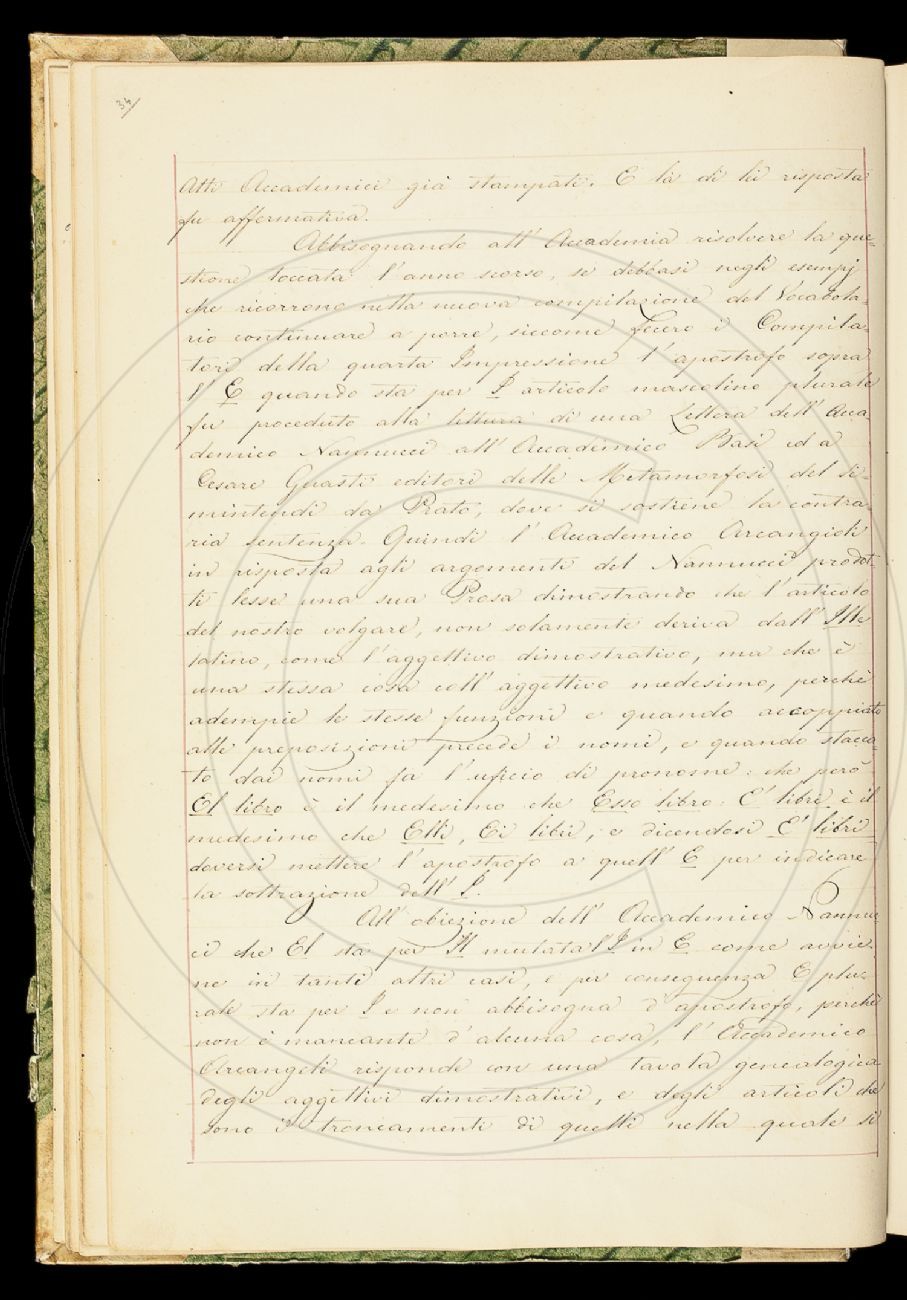 34
Atti Accademici già stampati. E la di lui risposta
fu affermativa.
Abbisognando all' Accademia risolvere la que=
stione toccata l'anno scorso, se debbasi negli esempj
che ricorrono nella nuova compilazione del Vocabola=
rio continuare a porre, siccome fecero i Compila=
tori della quarta Impressione l'apostrofo sopra
l' E quando sta per I articolo mascolino plurale
fu proceduto alla lettura di una Lettera dell' Acca
demico Nannucci all' Accademico Basi ed a
Cesare Guasti editori delle Metamorfosi del Si=
mintendi da Prato, dove si sostiene la contra=
ria sentenza. Quindi l' Accademico Arcangioli
in risposta agli argomenti del Nannucci prodot=
ti lesse una sua Prosa dimostrando che l'articolo
del nostro volgare, non solamente deriva dall' Ille
latino, come l'aggettivo dimostrativo, ma che è
una stessa cosa coll' aggettivo medesimo, perchè
adempie le stesse funzioni e quando accoppiato
alle preposizioni precede i nomi, e quando stacca=
to dai nomi fa l'uficio di pronome: che però
El libro è il medesimo che Esso libro: E' libri è il
medesimo che Elli, Ei libri, e dicendosi E' libri
doversi mettere l'apostrofo a quell' E per indicare
la sottrazione dell' I.
All' obiezione dell' Accademico Nannuc
ci che El sta per Il mutata l'I in E come avvie=
ne in tanti altri casi, e per conseguenza E plu=
rale sta per I e non abbisogna d'apostrofo, perchè
non è mancante d'alcuna cosa, l' Accademico
Arcangeli risponde con una tavola genealogica
degli aggettivi dimostrativi, e degli articoli che
sono i troncamenti di quelli nella quale si